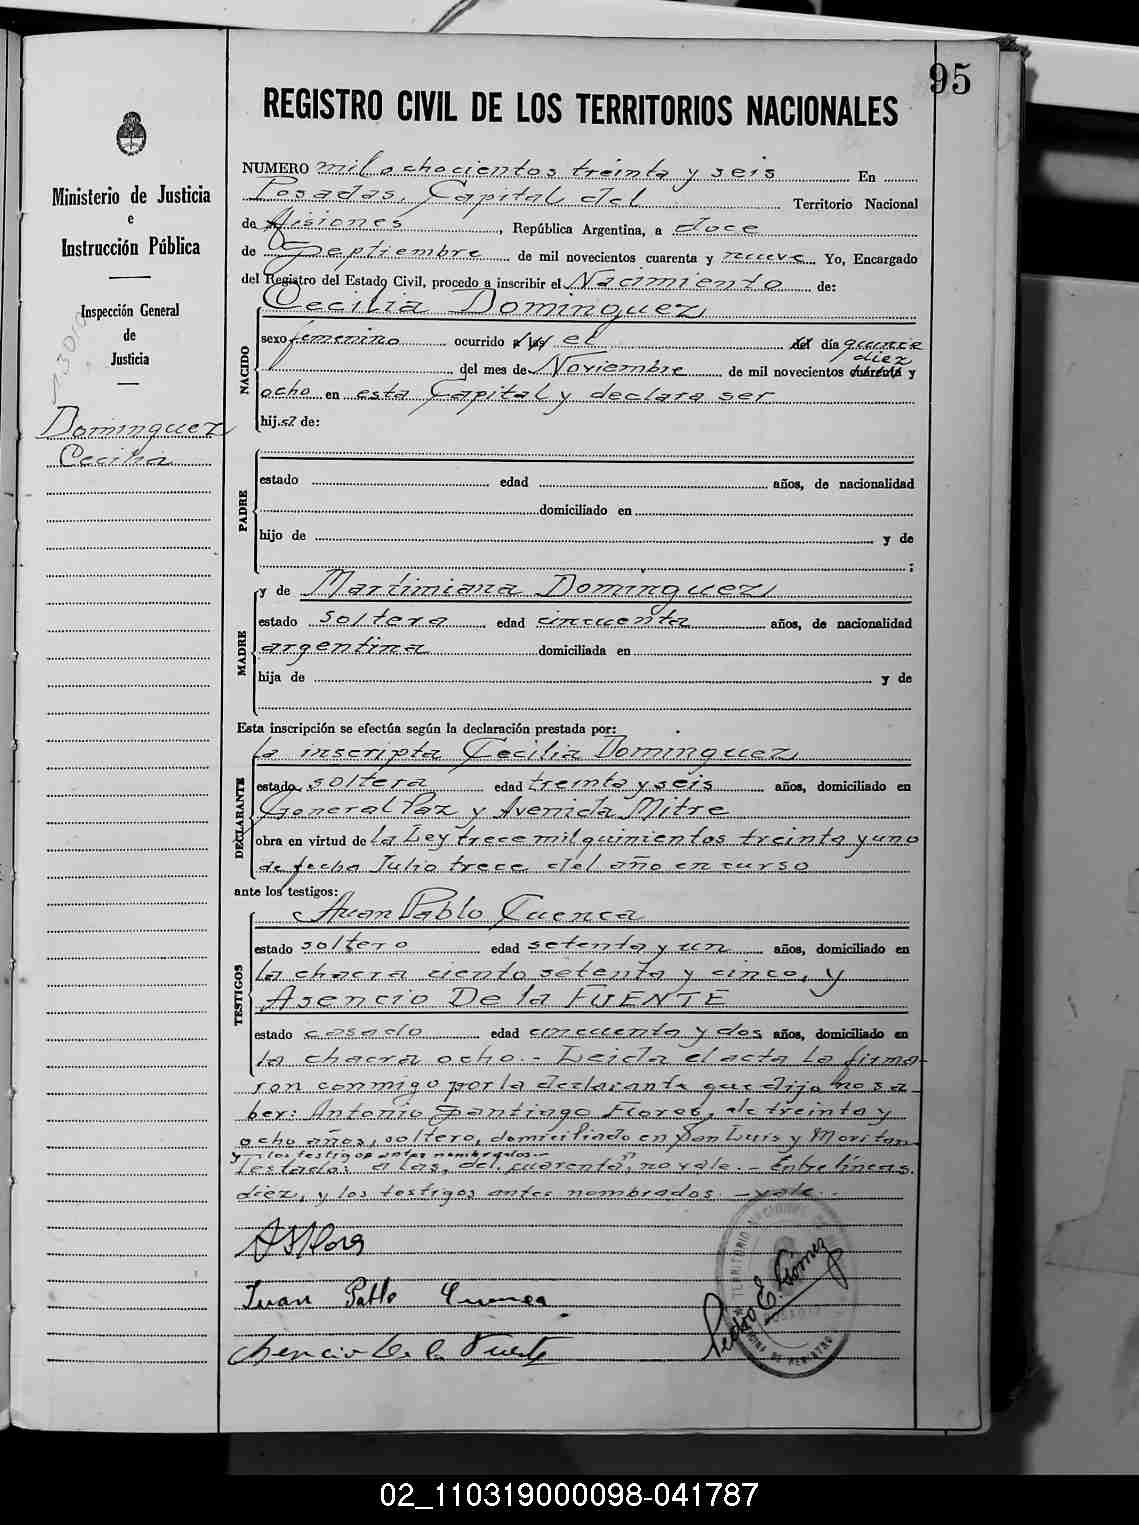 95
REGISTRO CIVIL DE LOS TERRITORIOS NACIONALES
Ministerio de Justicia
e
Instrucción Pública
Inspección General
de
Justicia
Dominguez
Cecilia
NUMERO mil ochocientos treinta y seis En
Posadas, Capital del Territorio Nacional
de Misiones, República Argentina, a doce
de Septiembre de mil novecientos cuarenta y nueve Yo, Encargado
del Registro del Estado Civil, procedo a inscribir el Nacimiento de:
Cecilia Dominguez
NACIDO
sexo femenino ocurrido a las el del día quince
diez
del mes de Noviembre de mil novecientos cuarenta y
ocho en esta Capital y declara ser
hija de:
PADRE
estado edad años, de nacionalidad
domiciliado en
hijo de y de
;
MADRE
y de Martimiana Dominguez
estado soltera edad cincuenta años, de nacionalidad
argentina domiciliada en
hija de y de
Esta inscripción se efectúa según la declaración prestada por:
la inscripta Cecilia Dominguez
DECLARANTE
estado soltera edad treinta y seis años, domiciliado en
General Paz y Avenida Mitre
obra en virtud de la Ley trece mil quinientos treinta y uno
de fecha Julio trece del año en curso
ante los testigos:
Juan Pablo Cuenca
TESTIGOS
estado soltero edad setenta y un años, domiciliado en
la chacra ciento setenta y cinco, y
Asencio De la FUENTE
estado casado edad cincuenta y dos años, domiciliado en
la chacra ocho.- Leida el acta la firma-
ron conmigo por la declarante que dijo no sa-
ber: Antonio Santiago Flores, de treinta y
ocho años, soltero, domiciliado en San Luis y
y los testigos antes nombrados.-
Testado: a las, del, cuarenta, no vale.- Entre líneas.
diez, y los testigos antes nombrados.-vale.-
Juan Pablo Cuenca
Asencio De la Fuente
Pedro E. Gómez
02_110319000098-041787